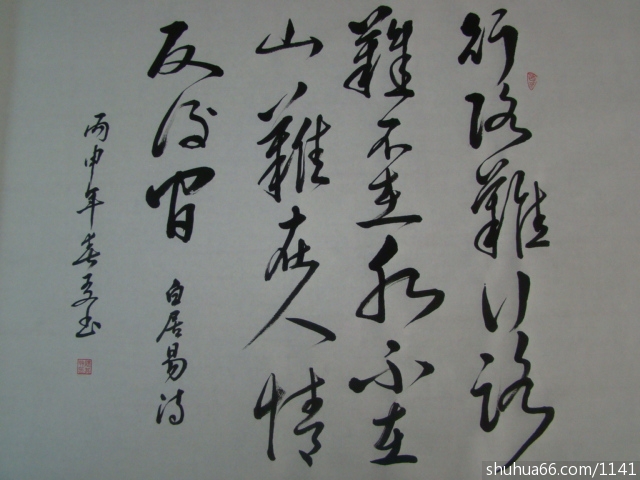 行路難行路
難不在水不在
山難在人情
反復間
白居易诗
丙申年春夏书
shuhua66.com/1141